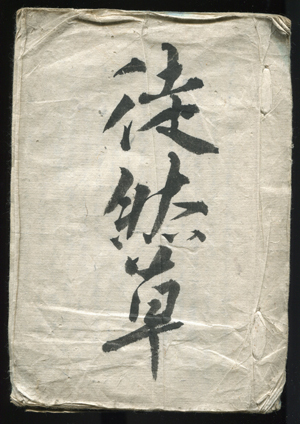 徒然草